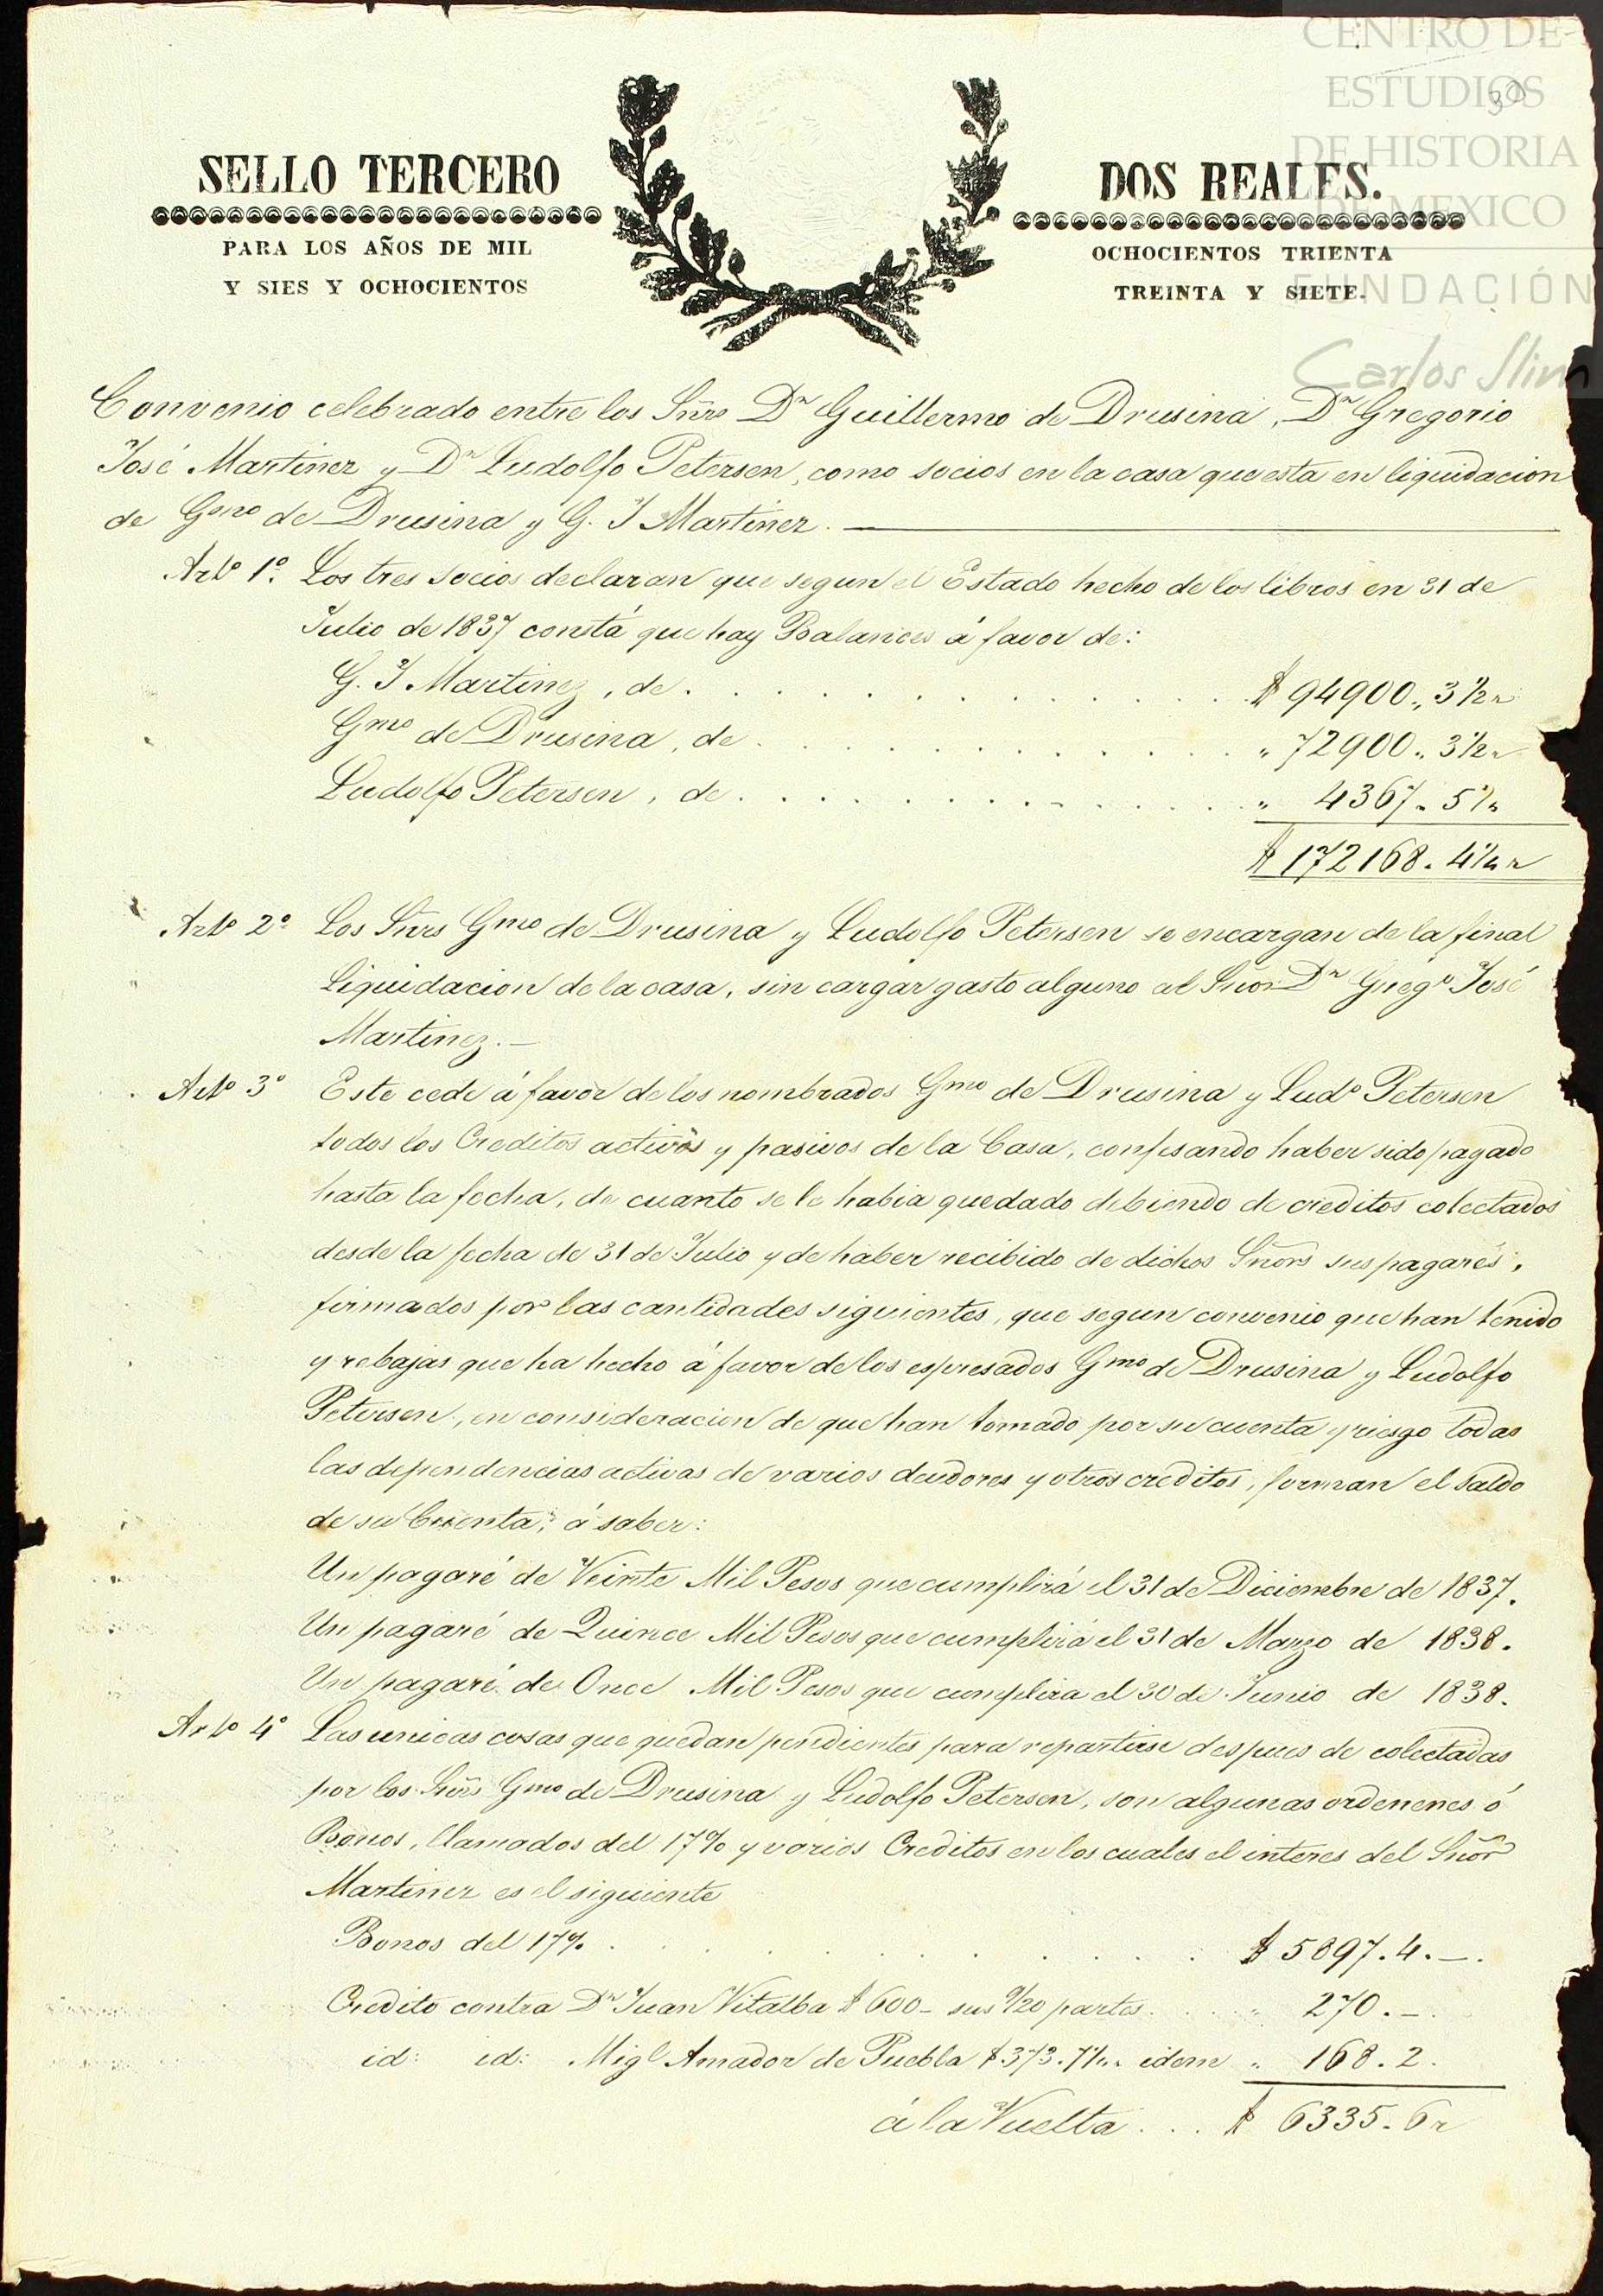 CENTRO DE
ESTUDIOS
DE HISTORIA
DE MEXICO
FUNDACIÓN
Carlos Slim
30
SELLO TERCERO
DOS REALES.
PARA LOS AÑOS DE MIL
OCHOCIENTOS TRIENTA
Y SIES Y OCHOCIENTOS
TREINTA Y SIETE.
Convenio celebrado entre los Sñrs Dn Guillermo de Drusina, Dn Gregorio
José Martinez y Dn Ludolfo Petersen, como socios en la casa que esta en liquidacion
de Gmo de Drusina y G. J Martinez.
Arto 1º. Los tres socios declaran que segun el Estado hecho de los libros en 31 de
Julio de 1837 constá que hay Balances á favor de:
G. J Martinez, de . . . . . . . . . . . $ 94900., 3 1/2 r
Gmo de Drusina, de . . . . . . . . . . . " 72900., 3 1/2 r
Ludolfo Petersen, de . . . . . . . . . . . " 4367. 5 1/4
$ 172168. 4 1/4 r
Arto 2º Los Sñrs Gmo de Drusina y Ludolfo Petersen se encargan de la final
Liquidacion de la casa, sin cargar gasto alguno al Sñor Dn Grego José
Martinez.—
Arto 3º Este cede á favor de los nombrados Gmo de Drusina y Ludo Petersen
todos los Creditos activos y pasivos de la Casa, confesando haber sido pagado
hasta la fecha, de cuanto se le habia quedado debiendo de creditos colectados
desde la fecha de 31 de Julio y de haber recibido de dichos Sñors sus pagarés,
firmados por las cantidades siguientes, que segun convenio que han tenido
y rebajas que ha hecho á favor de los espresados Gmo de Drusina y Ludolfo
Petersen, en consideracion de que han tomado por su cuenta y riesgo todas
las dependencias activas de varios deudores y otros creditos, forman el saldo
de su Cuenta, á saber:
Un pagaré de Veinte Mil Pesos que cumplirá el 31 de Diciembre de 1837.
Un pagaré de Quince Mil Pesos que cumplirá el 31 de Marzo de 1838.
Un pagaré de Once Mil Pesos que cumplira el 30 de Junio de 1838.
Arto 4º Las unicas cosas que quedan pendientes para repartirse despues de colectadas
por los Sñrs Gmo de Drusina y Ludolfo Petersen, son algunas ordenenes ó
Bonos, llamados del 17% y varios Creditos en los cuales el interes del Sñor
Martinez es el siguiente
Bonos del 17% . . . . . . . . . . . $ 5897.4.—.
Credito contra Dn Juan Vitalba $ 600– sus 9/20 partes . . . . " 270.—.
id: id: Migl Amador de Puebla $ 373.7 1/4 r idem " 168.2.
á la Vuelta . . . $ 6335.6 r